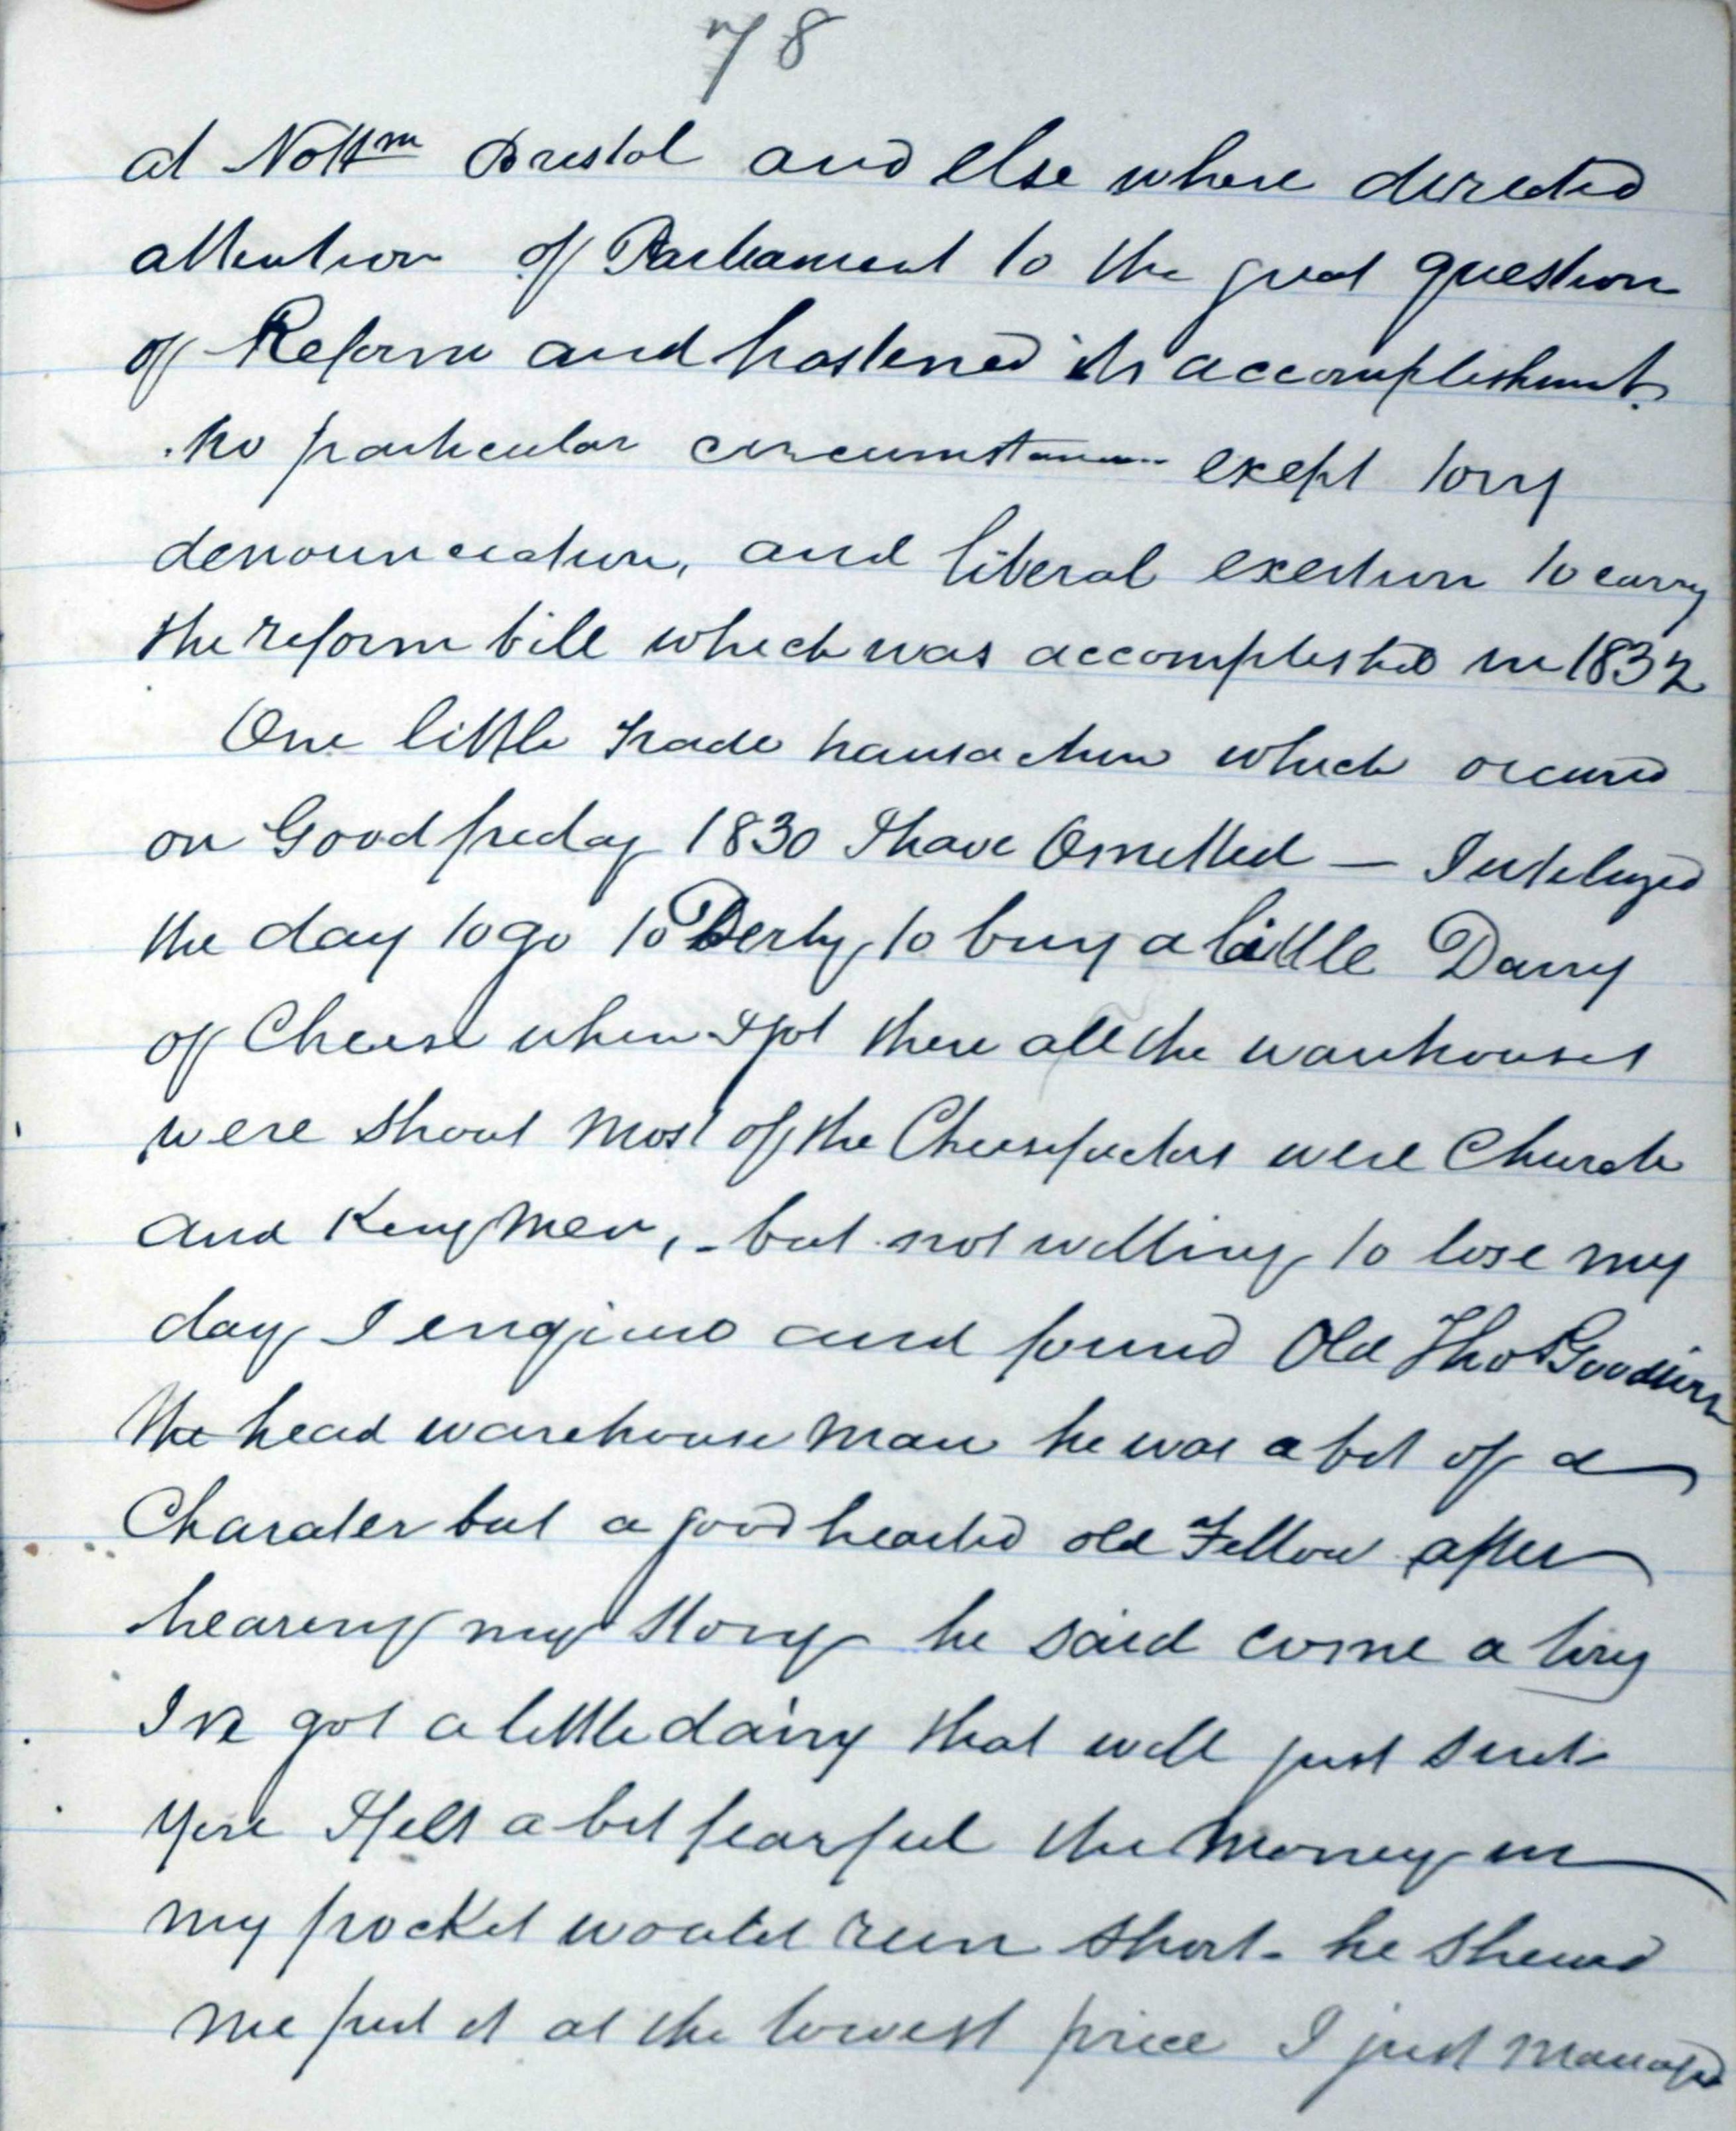 78
at Nottm Bristol and else where directed
attention of Parliament to the great question
of Reform and hastened its accomplishment.
No particular circumstance exept tory
denounciation, and liberal exertion to carry
the reform bill which was accomplished in 1832
One little trade transaction which occured
on Good friday 1830 I have Omitted — I
the day to go to Derby, to buy a little Dairy
of Cheese when I got there all the warehouses
were shout most of the Cheesefactors were Church
and King Men, - but not willing to lose my
day I enqired and found Old Thos Goodwin
the head warehouse man he was a bit of a
Charater but a good hearted old Fellow after
hearing my story he said come a long
Ive got a little dairy that will just suit
you I felt a bit fearful the money in
my pocket would run short - he shewed
me put it at the lowest price I just managed